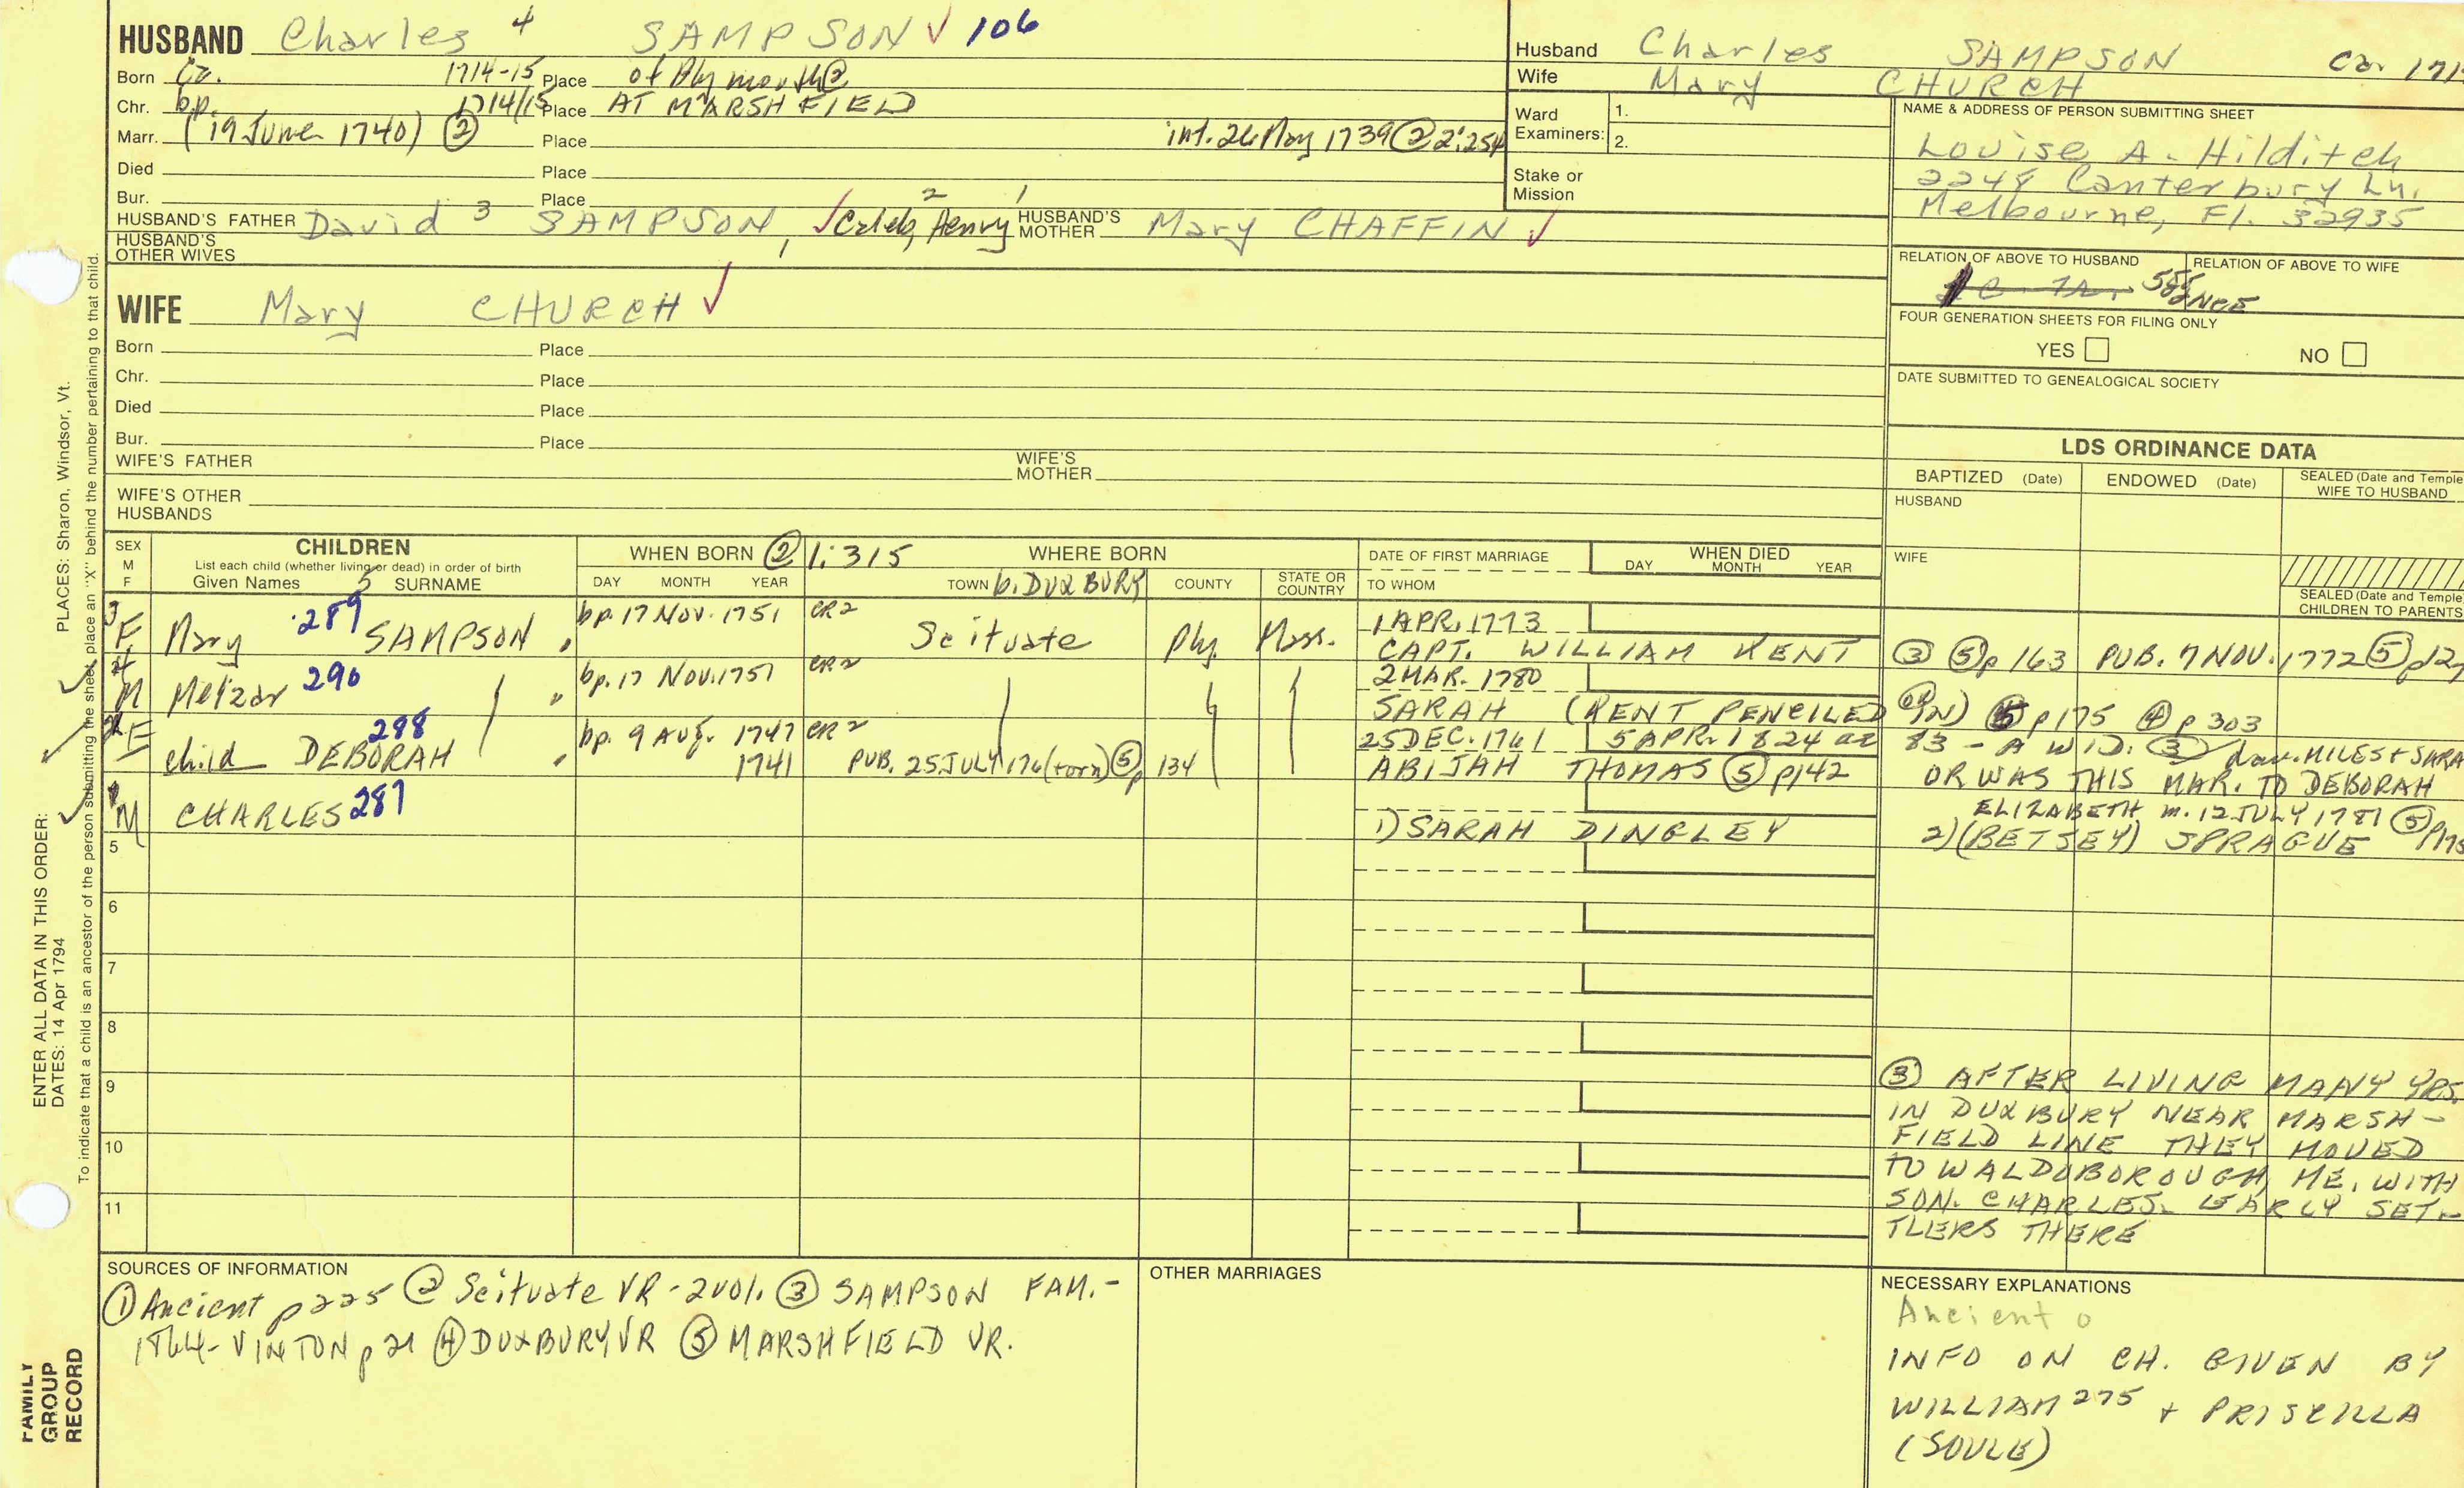 HUSBAND Charles 4 SAMPSON ✓ 106
Born Ca. 1714-15 Place of Plymouth ②
Chr. bp. 1714/15 Place AT MARSHFIELD
Marr. (19 June 1740) ② Place int. 26 May 1739 ② 2:254
Died Place
Bur. Place
HUSBAND'S FATHER David 3 SAMPSON, ✓ Caleb 2, Henry 1 HUSBAND'S MOTHER Mary CHAFFIN ✓
HUSBAND'S OTHER WIVES
WIFE Mary CHURCH ✓
Born Place
Chr. Place
Died Place
Bur. Place
WIFE'S FATHER WIFE'S MOTHER
WIFE'S OTHER HUSBANDS
Husband Charles SAMPSON Ca. 171
Wife Mary CHURCH
Ward Examiners: 1.
2.
Stake or Mission
NAME & ADDRESS OF PERSON SUBMITTING SHEET
Louise A. Hilditch
2248 Canterbury Ln.
Melbourne, Fl. 32935
RELATION OF ABOVE TO HUSBAND RELATION OF ABOVE TO WIFE
FOUR GENERATION SHEETS FOR FILING ONLY
YES NO
DATE SUBMITTED TO GENEALOGICAL SOCIETY
LDS ORDINANCE DATA
BAPTIZED (Date) ENDOWED (Date) SEALED (Date and Temple
WIFE TO HUSBAND
HUSBAND
WIFE
SEALED (Date and Temple
CHILDREN TO PARENTS
SEX M F CHILDREN
List each child (whether living or dead) in order of birth
Given Names 5 SURNAME
WHEN BORN ② 1:315 WHERE BORN
DAY MONTH YEAR TOWN b. DUXBURY COUNTY STATE OR COUNTRY
DATE OF FIRST MARRIAGE
TO WHOM
WHEN DIED
DAY MONTH YEAR
3 F Mary 289 SAMPSON bp. 17 NOV. 1751 CR2 Scituate Ply. Mass. 1 APR. 1773
CAPT. WILLIAM KENT ③ ⑤ p 163 PUB. 7 NOV. 1772 ⑤
4 M Melzar 290 " bp. 17 NOV. 1751 CR2 2 MAR. 1780
SARAH (KENT PENCILED IN) ⑤ p 175 ④ p 303
2 F child DEBORAH 288 " bp. 9 AUG. 1747 CR2 25 DEC. 1761 5 APR. 1824 ae 83 - A WID. ③ dau. MILES + SARA
1741 PUB. 25 JULY 176(torn) ⑤ p 134 ABIJAH THOMAS ⑤ p 142 OR WAS THIS MAR. TO DEBORAH
1 M CHARLES 287 1) SARAH DINGLEY
ELIZABETH m. 12 JULY 1781 ⑤
2) (BETSEY) SPRAGUE
5
6
7
8
9
10
11
③ AFTER LIVING MANY YRS.
IN DUXBURY NEAR MARSH-
FIELD LINE THEY MOVED
TO WALDOBOROUGH, ME. WITH
SON. CHARLES. EARLY SET-
TLERS THERE
SOURCES OF INFORMATION
① Ancient p 225 ② Scituate VR - 2 vol. ③ SAMPSON FAM. -
1864 - VINTON p 21 ④ DUXBURY VR ⑤ MARSHFIELD VR.
OTHER MARRIAGES
NECESSARY EXPLANATIONS
Ancient
INFO ON CH. GIVEN BY
WILLIAM 275 + PRISCILLA
(SOULE)
PLACES: Sharon, Windsor, Vt.
ENTER ALL DATA IN THIS ORDER:
DATES: 14 Apr 1794
To indicate that a child is an ancestor of the person submitting the sheet, place an "X" behind the number pertaining to that child.
FAMILY
GROUP
RECORD